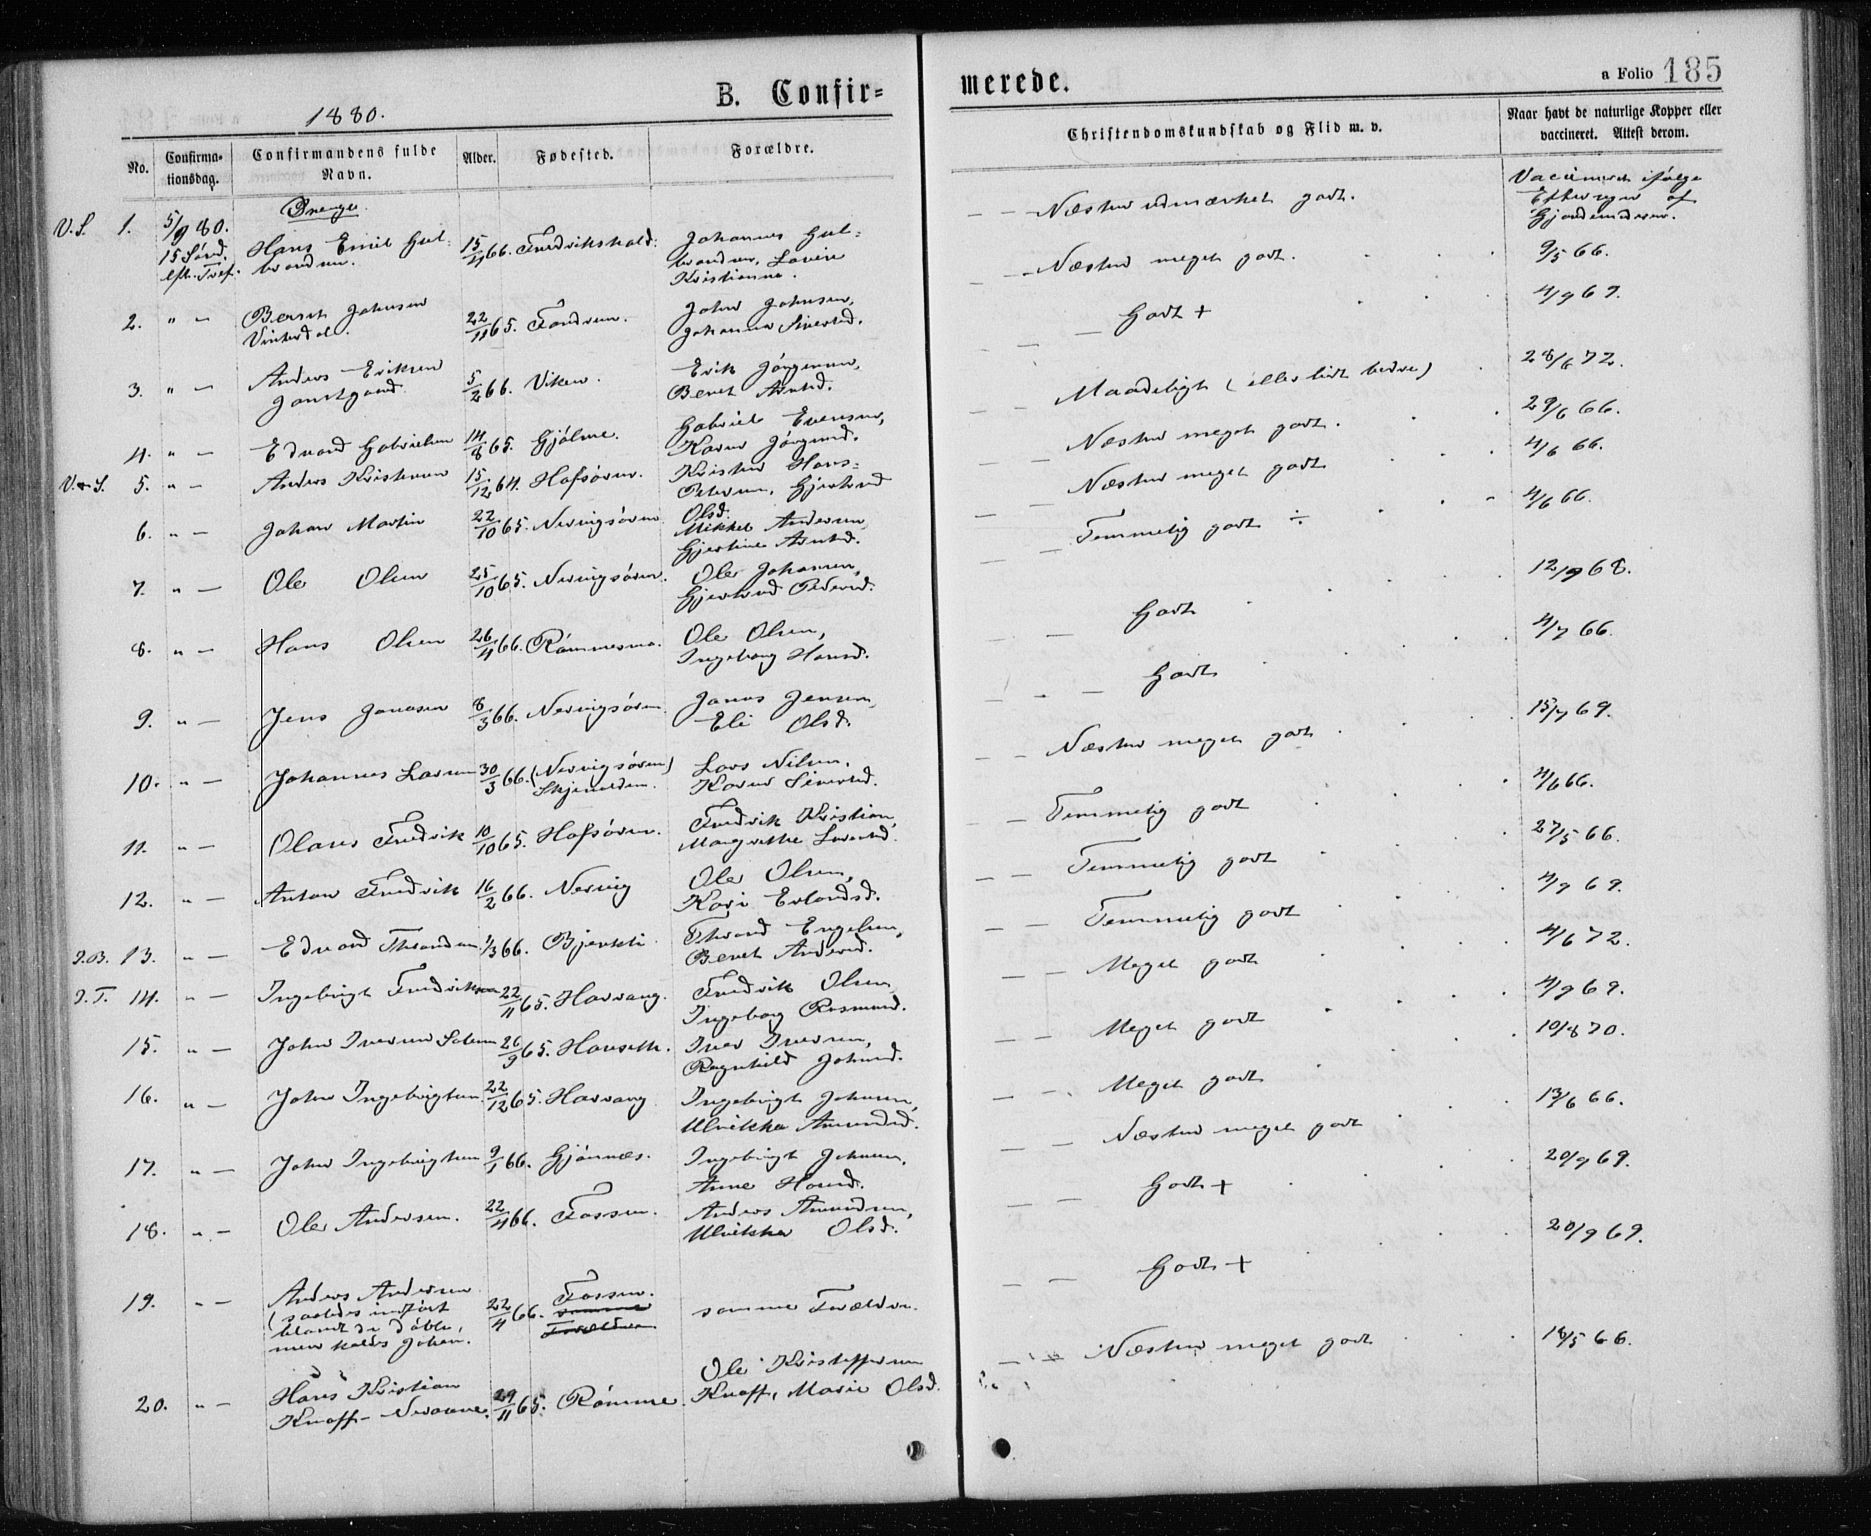 B. Confir=
merede.
a Folio 185
1880.
No.
Confirma-
tionsdag.
Confirmandens fulde
Navn.
Alder.
Fødested.
Forældre.
Christendomskundskab og Flid m. v.
Naar havt de naturlige Kopper eller
vaccineret. Attest derom.
Drenge.
V.S. 1. 5/9 80. Hans Emil Gul- 15/4 66. Fredrikshald. Johannes Gul=
15 Sønd. brandsen. brandsen, Lovise
eft. Tref. Kristianna.
Næsten udmærket godt.
2. " — Berent Johnsen 22/11 65. Fandrem. John Johnsen,
Vinterdal. Johanna Sivertsd.
Næsten meget godt. 9/5 66.
3. " — Anders Eriksen 5/2 66. Viken. Erik Jørgensen,
Beret Arntsd.
Godt + 4/9 67.
4. " — Edvard Gabrielsen 14/8 65. Gjølme. Gabriel Evensen,
Karen Jørgensd.
Maadeligt (eller lidt bedre) 28/6 72.
V.&S. 5. " — Anders Kristensen 15/12 64. Hofsøren. Kristen Hans=
Petersen, Gjertrud
Olsd.
Næsten meget godt. 29/6 66.
6. " — Johan Martin 22/10 65. Nervigsøren Mikkel Andersen,
Gjertine Arntsd.
Næsten meget godt 4/6 66.
7. " — Ole Olsen 25/10 65. Nervigsøren. Ole Johansen,
Gjertrud Pedersd.
Temmelig godt ÷ 4/6 66.
8. " — Hans Olsen 26/4 66. Rømmesmo. Ole Olsen,
Ingeborg Hansd.
Godt 12/9 68.
9. " — Jens Jonasen 8/3 66. Nervigsøren Jonas Jensen,
Eli Olsd.
Godt 4/7 66.
10. " — Johannes Larsen 30/3 66. (Nervigsøren) Lars Nilsen,
Skjenalden. Karen Sivertsd.
Næsten meget godt 15/7 69.
11. " — Olaus Fredrik 10/10 65. Hofsøren. Fredrik Kristian,
Margrethe Larsd.
Temmelig godt 4/6 66.
12. " — Anton Fredrik 16/2 66. Nervig Ole Olsen,
Kari Erlandsd.
Temmelig godt 27/5 66.
13. " — Edvard Throndsen 1/3 66. Bjerkli Thrond Engelsen,
Beret Andersd.
Temmelig godt 4/9 69.
I.T. 14. " — Ingebrigt Fredriksen 22/11 65. Harvang. Fredrik Olsen,
Ingeborg Rasmusd.
Meget godt 4/6 72.
15. " — John Iversen Solem 26/9 65. Hanseth. Iver Iversen,
Ragnhild Johnsd.
Meget godt 4/9 69.
16. " — John Ingebrigtsen 22/12 65. Harvang Ingebrigt Johnsen,
Ulrikka Amundsd.
Meget godt 10/8 70.
17. " — John Ingebrigtsen 9/1 66. Gjønnæs. Ingebrigt Johnsen,
Anne Hansd.
Næsten meget godt 13/6 66.
18. " — Ole Andersen. 22/4 66. Fossen. Anders Amundsen,
Ulrikka Olsd.
Godt + 20/9 69.
19. " — Anders Andersen 22/4 66. Fossen. samme Forældre.
(saaledes indført
blandt de døbte,
men kaldes Johan.
Godt + 20/9 69.
20. " — Hans Kristian 29/11 65. Rømme. Ole Kristoffersen
Knoff - Neraune. Knoff, Marie Olsd.
Næsten meget godt 18/5 66.